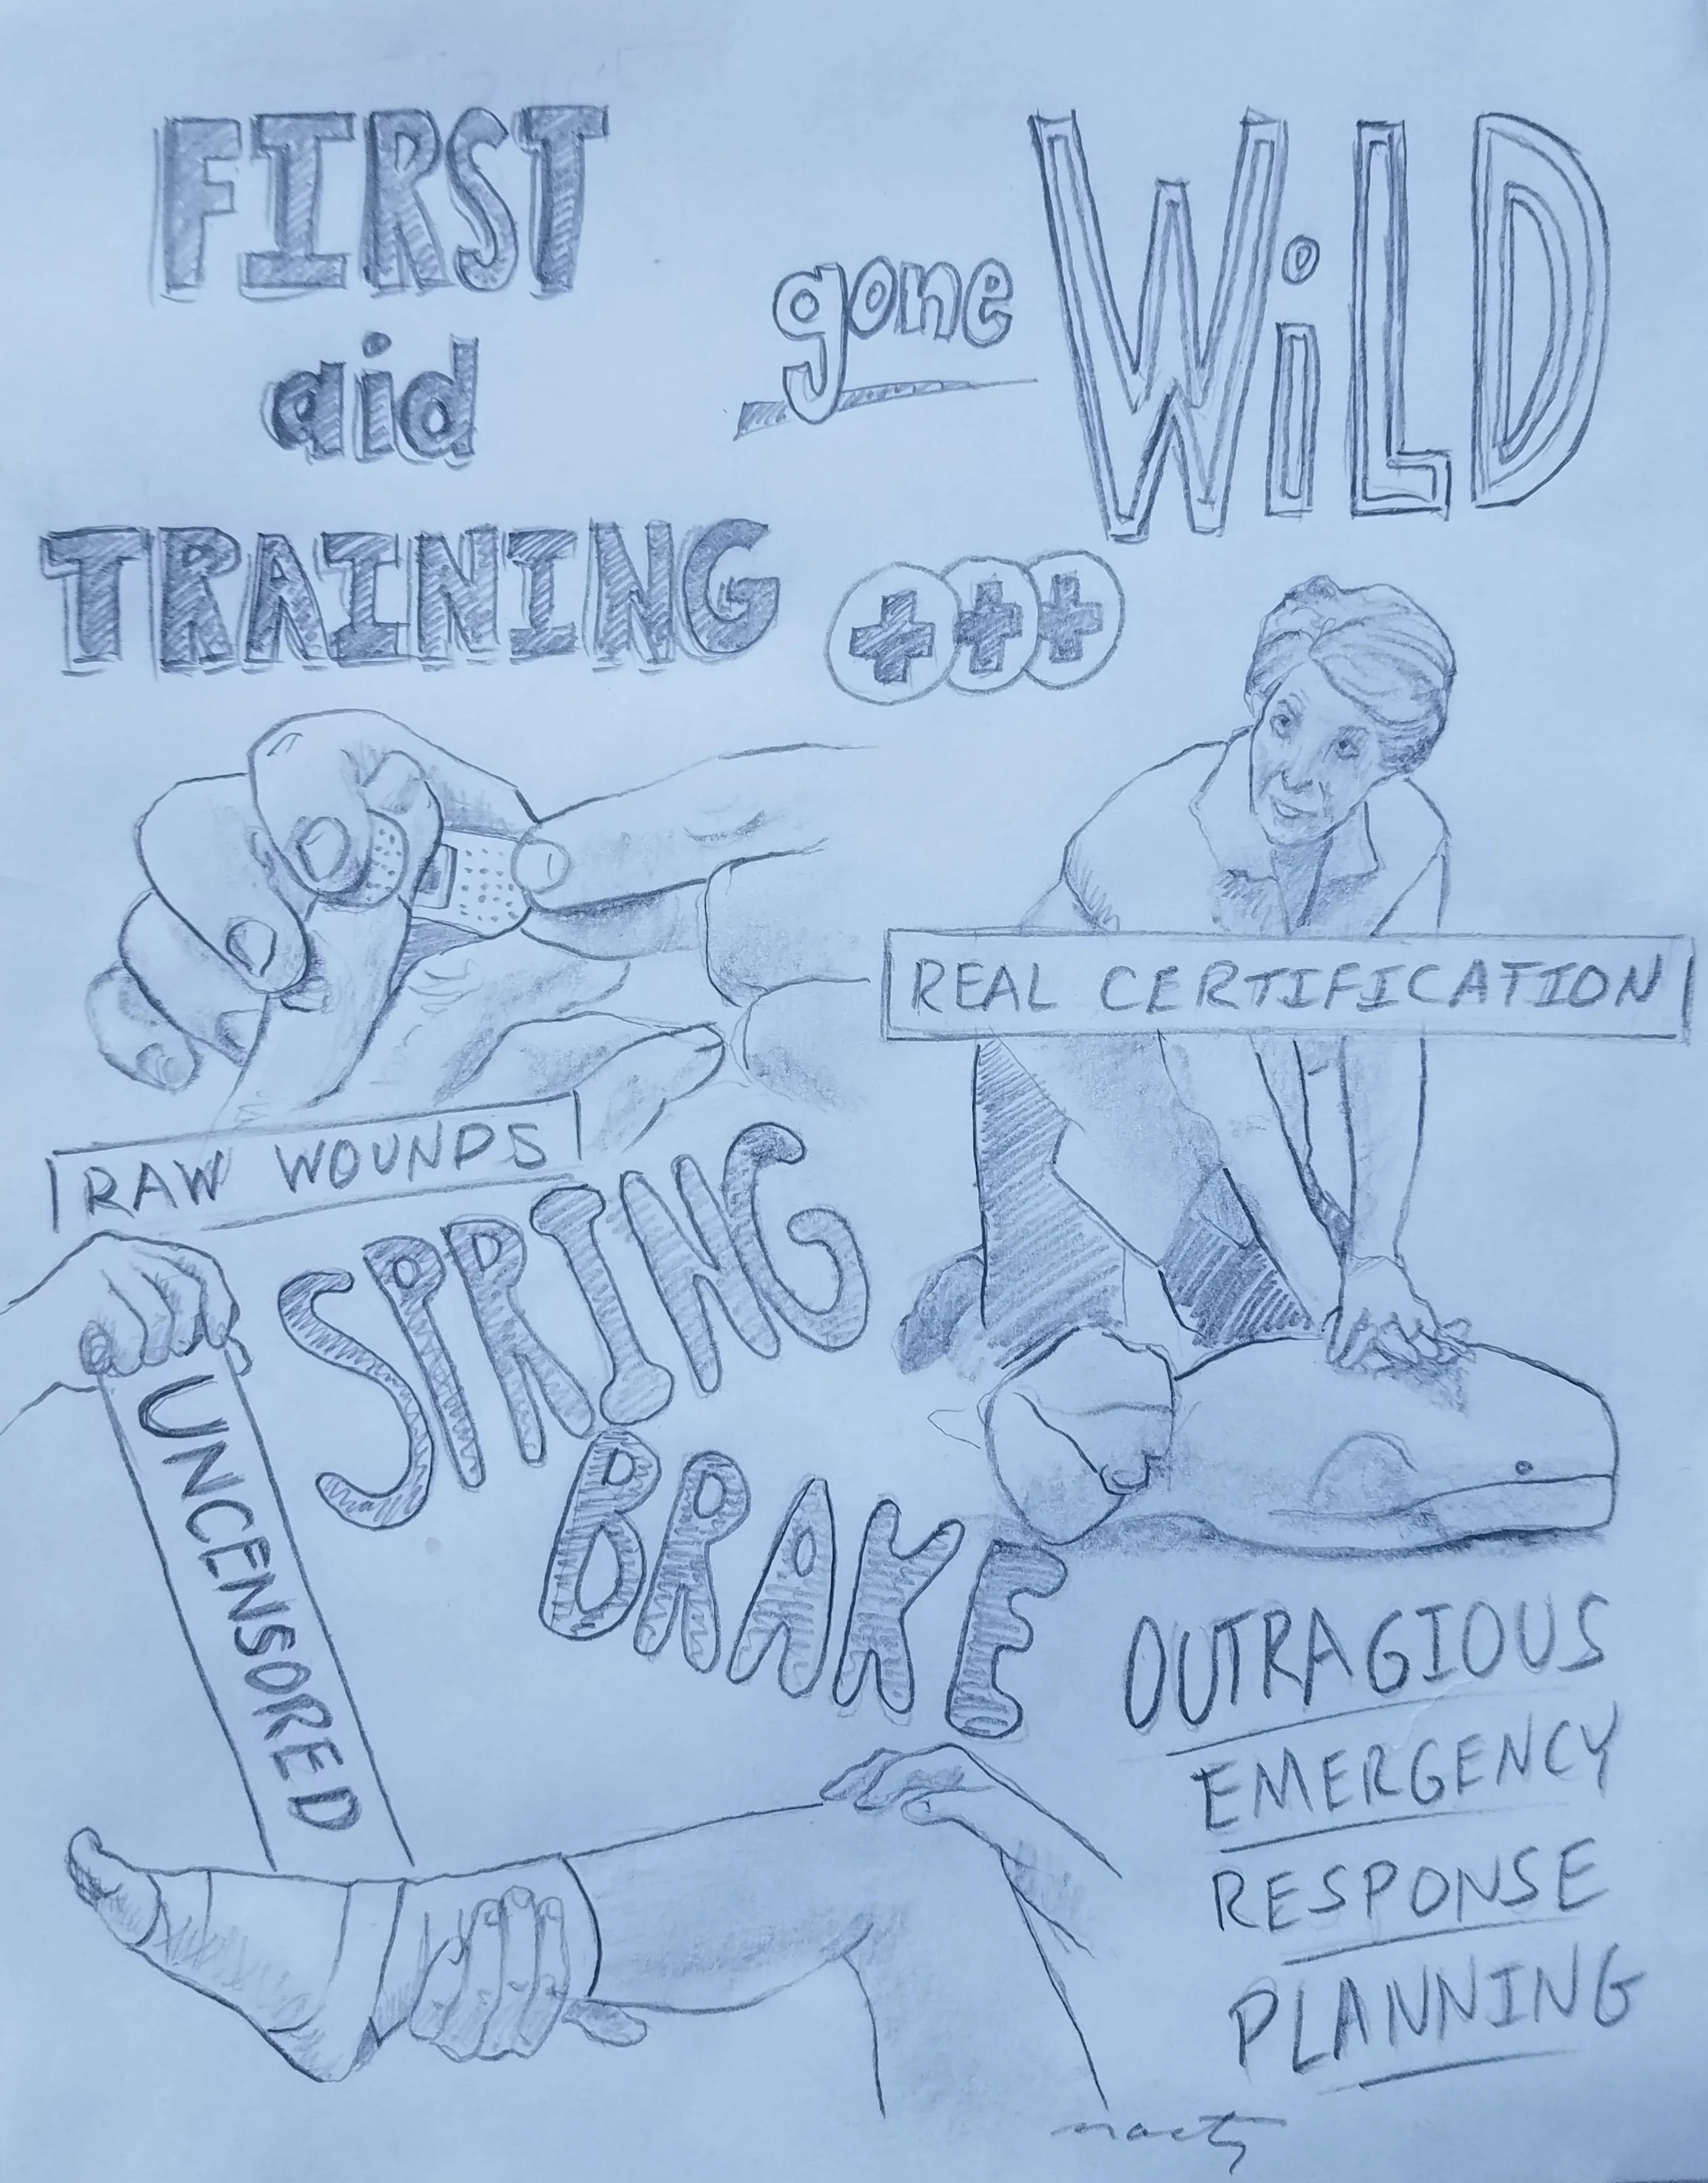 FIRST
aid
TRAINING
gone
WiLD
REAL CERTIFICATION
RAW WOUNDS
SPRING
BRAKE
UNCENSORED
OUTRAGIOUS
EMERGENCY
RESPONSE
PLANNING